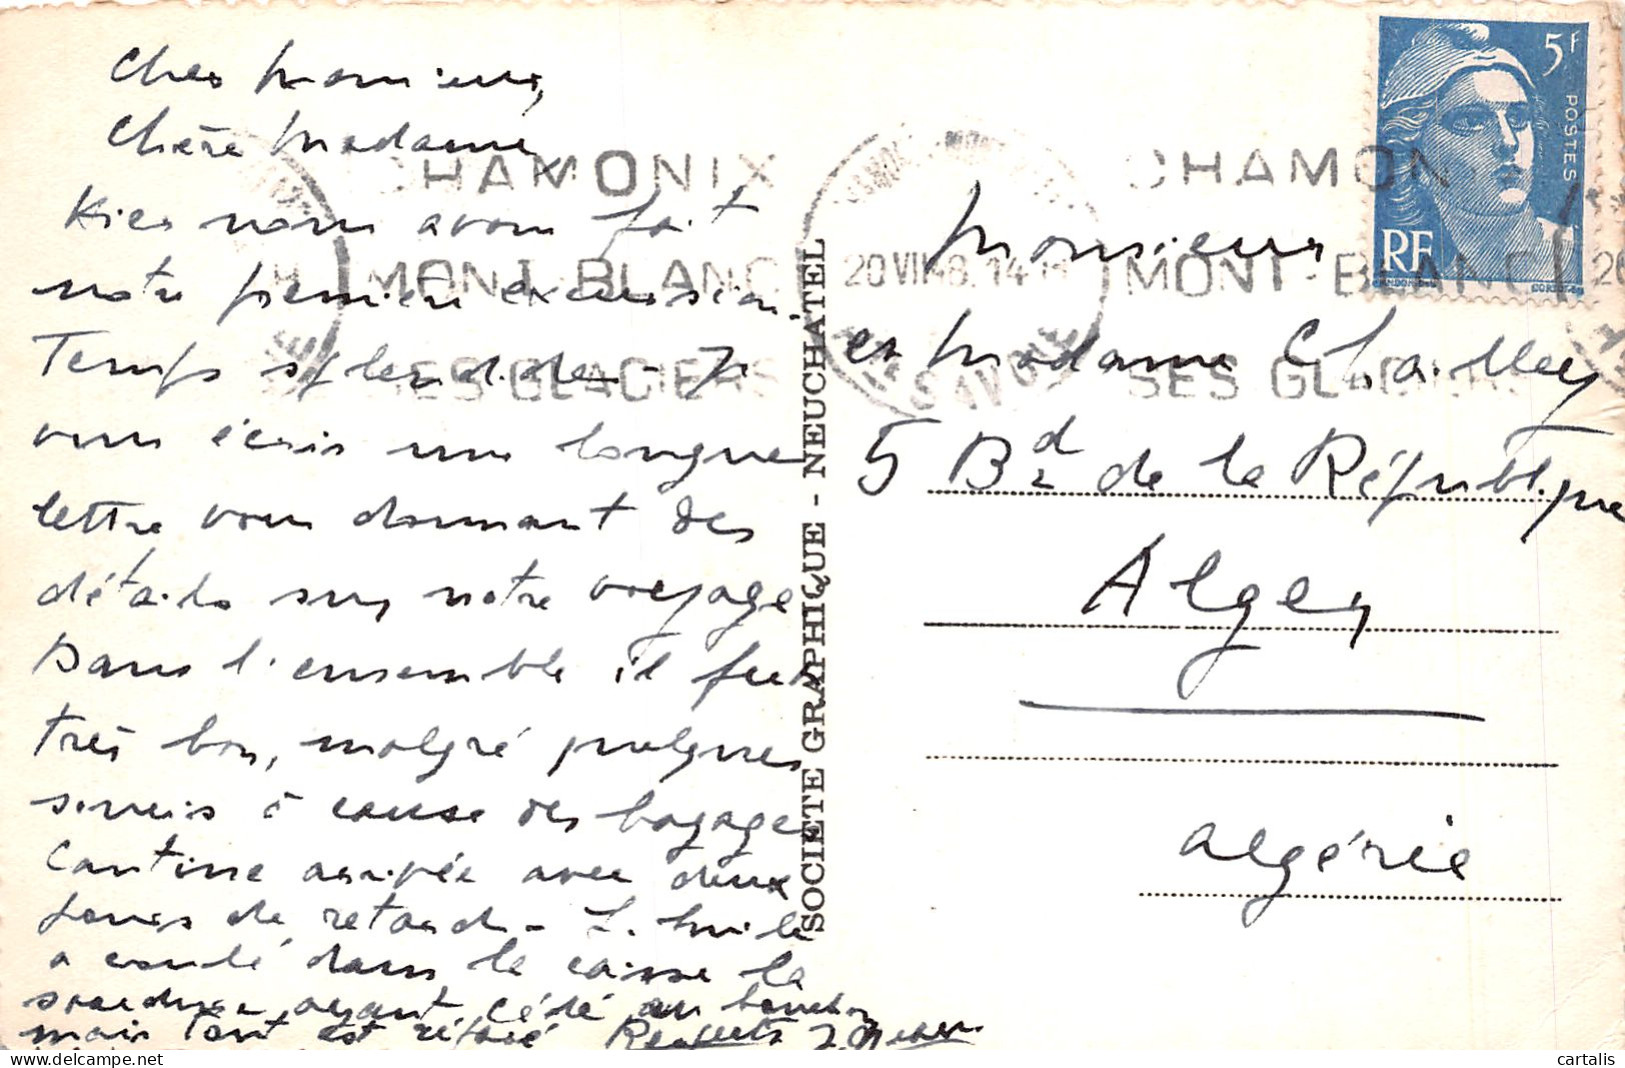 Cher Monsieur,
Chère Madame
Hier nous avons fait
notre première excursion.
Temps splendide - Je
vous écris une longue
lettre vous donnant des
détails sur notre voyage
Dans l'ensemble il fut
très bon, malgré quelques
soucis à cause des bagages
Cantine arrivée avec deux
jours de retard - L'huile
a coulé dans la caisse la
soudure ayant cédé au bouchon
mais tout est réparé Respects
SOCIETE GRAPHIQUE - NEUCHATEL
CHAMONIX
MONT-BLANC
SES GLACIERS
20 VII 48
SAVOIE
CHAMON
MONT-BLANC
SES GLACIERS
5F
POSTES
RF
GANDON
Monsieur
et Madame Chailley
5 Bd de la République
Alger
Algérie
cartalis